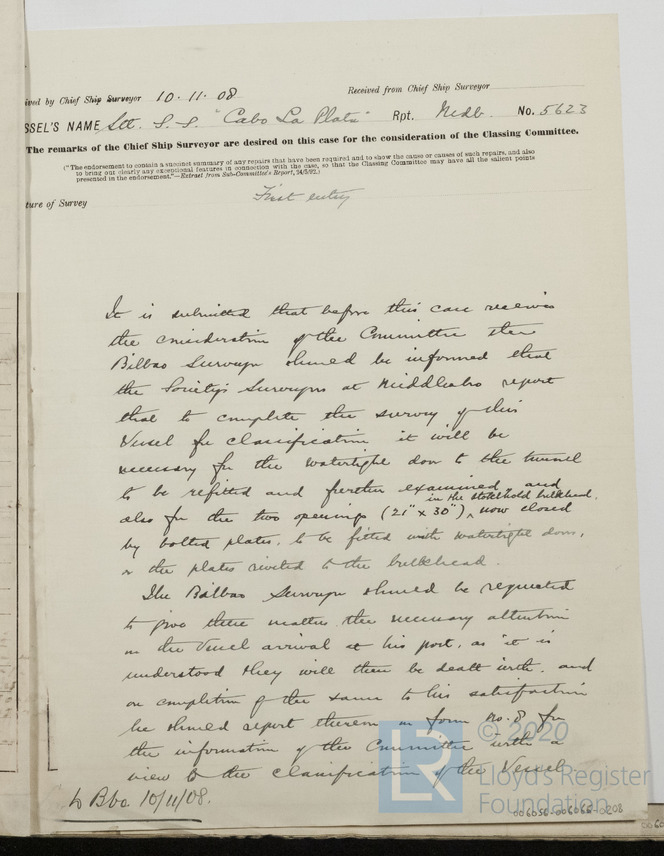 ived by Chief Ship Surveyor 10.11.08 Received from Chief Ship Surveyor
SSEL'S NAME Stl. S.S. "Cabo La Plata" Rpt. Midb. No. 5623
The remarks of the Chief Ship Surveyor are desired on this case for the consideration of the Classing Committee.
("The endorsement to contain a succinct summary of any repairs that have been required and to show the cause or causes of such repairs, and also
to bring out clearly any exceptional features in connection with the case, so that the Classing Committee may have all the salient points
presented in the endorsement."—Extract from Sub-Committee's Report, 24/5/92.)
ture of Survey First entry
It is submitted that before this case receives
the consideration of the Committee the
Bilbao Surveyor should be informed that
the Society's Surveyors at Middlesbro report
that to complete the survey of this
Vessel for classification it will be
necessary for the watertight door to the tunnel
to be refitted and further examined, and
in the stokehold bulkhead.
also for the two openings (21" x 30") ^ now closed
by bolted plates, to be fitted with watertight doors,
or the plates riveted to the bulkhead.
The Bilbao Surveyor should be requested
to give these matters the necessary attention
on the Vessel arrival at his port, as it is
understood they will then be dealt with, and
on completion of the same to his satisfaction
he should report thereon on form No. 8 for
the information of the Committee with a
view to the classification of the Vessel
to Bbo. 10/11/08.
© 2020
LR
Lloyd's Register
Foundation
006056-006068-0208